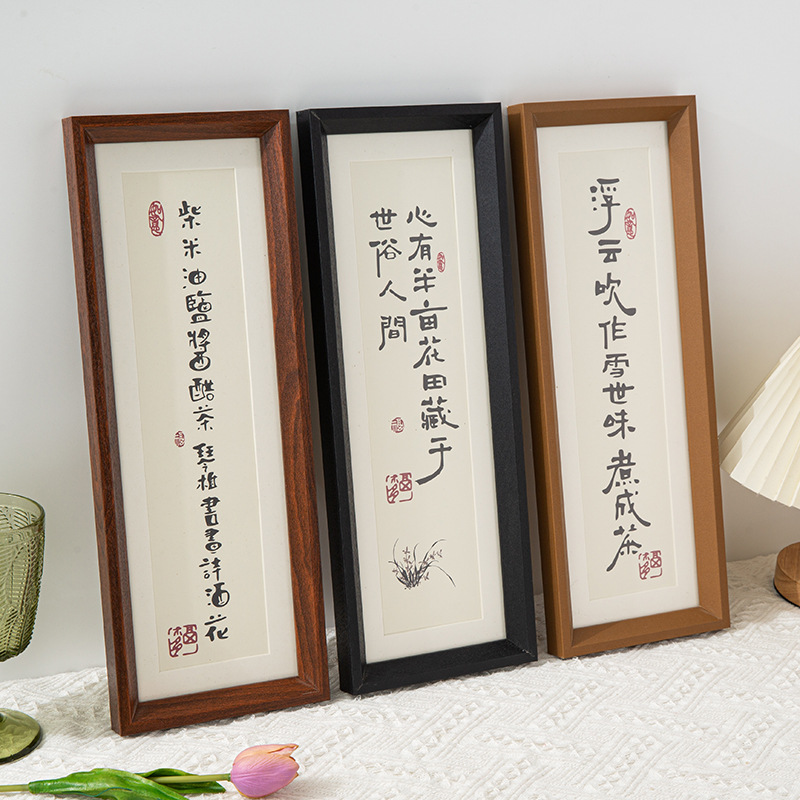 柴米油鹽醬醋茶 琴棋書畫詩酒花
心有半亩花田藏于
世俗人間
浮云吹作雪世味煮成茶